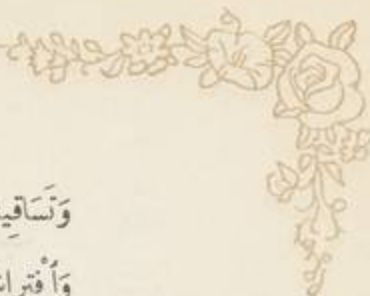 وَتَسَاقِي
وَٱفْتِرَا